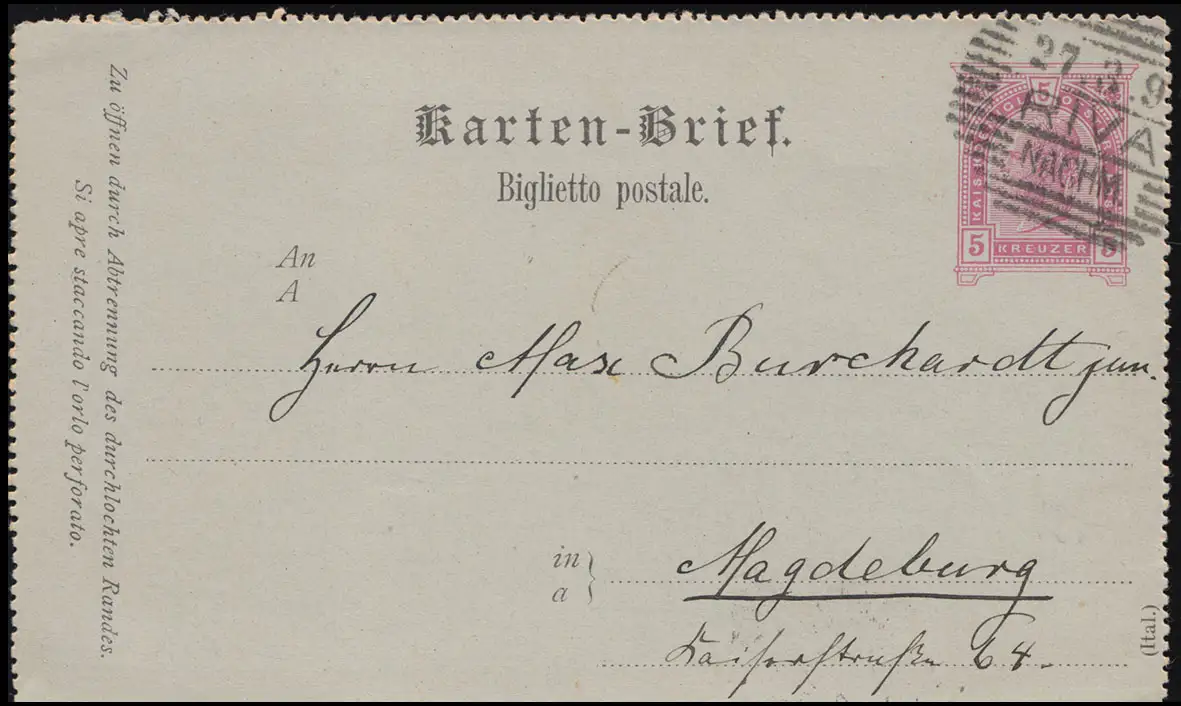 Karten-Brief.
Biglietto postale.
27.3.9
RIVA
NACHM
5
5 KREUZER 5
An
A
Herrn Max Burchardt jun.
in
a
Magdeburg
Kaiserstraße 64.
Zu öffnen durch Abtrennung des durchlochten Randes.
Si apre staccando l'orlo perforato.
(Ital.)